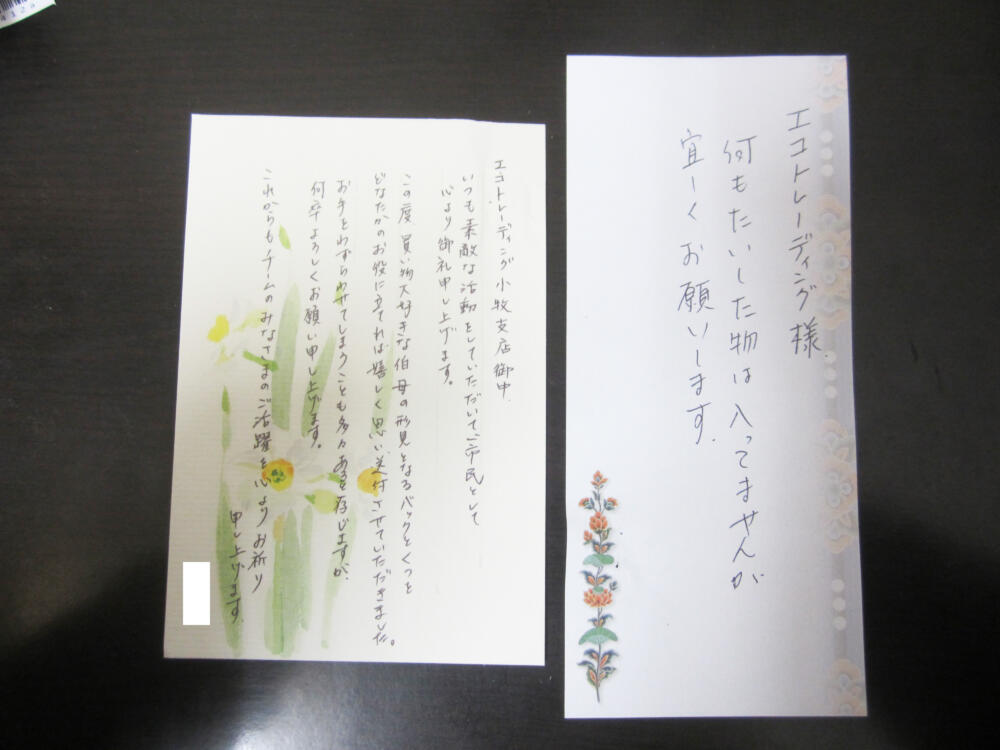 エコトレーディング様
何もたいした物は入ってませんが
宜しくお願いします。
エコトレーディング小牧支店御中
いつも素敵な活動をしていただいて一市民として
心より御礼申し上げます。
この度買い物大好きな伯母の形見となるバックとくつを
どなたかのお役に立てれば嬉しく思い送付させていただきました。
お手をわずらわせてしまうことも多々あると存じますが、
何卒よろしくお願い申し上げます。
これからもチームのみなさまのご活躍を心よりお祈り
申し上げます。